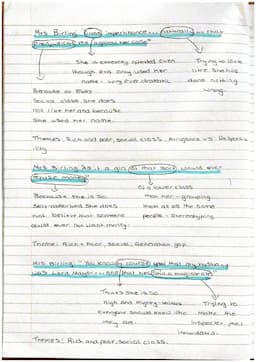 Mrs Birling "gross impertinence... naturally so that
prejudiced me against her case"
She is extremely offended even Trying to look
though Eva only used her like She has
name - very over dramatic done nothing
Because of Evas wrong.
Social class, She does
not like her and because
She used her name.
Themes: Rich and poor, social class, Arrogance vs Responsi
-bility
Mrs Birling As if a girl of that sort would ever
refuse money"
Because She is So of a lower class
Self-absorbed She does than her - grouping
not believe that someone them as all the same
could ever not want money. people - Stereotyping
Theme: Rich + Poor, social, Generation gap.
Mrs Birling: "You know of course that my husband
was Lord Mayor... and that he's still a magistrate"
Thinks she is So Trying to
high and mighty - values make the
everyone should know who inspector feel
they are.
Themes: Rich and poor, social class.